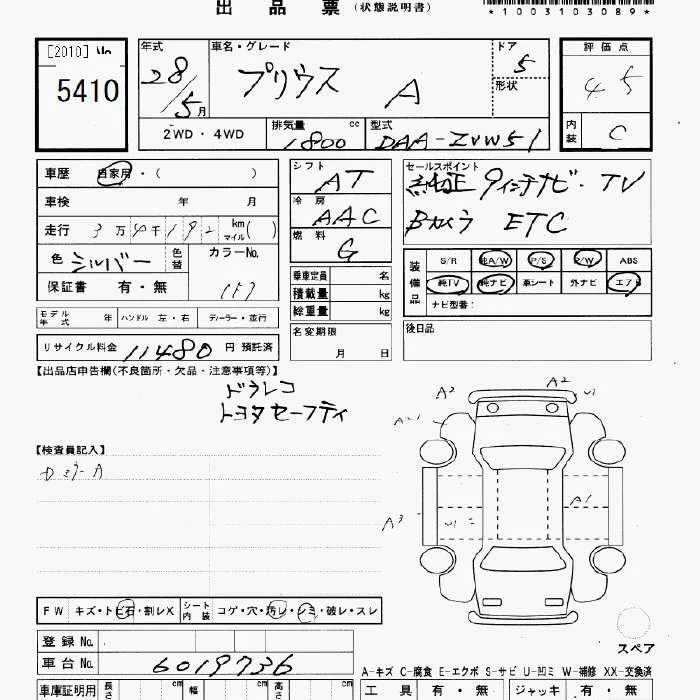 出 品 票 (状態説明書)
*1003103089*
[2010] No.
5410
年式 車名・グレード ドア 評価点
28/5月 プリウス A 5 4 5
形状
2WD・4WD 排気量 cc 1800 型式 DAA-ZVW51 内装 C
車歴 自家用・( )
車検 年 月
走行 3万4千192 km マイル( )
色 シルバー 色替 カラーNo.
保証書 有・無
シフト AT
冷房 AAC
燃料 G
乗車定員 名
積載量 kg
総重量 kg
セールスポイント
純正9インチナビ・TV
Bカメラ ETC
装備品 S/R 純A/W P/S P/W ABS
純TV 純ナビ 革シート 外ナビ エアB
ナビ型番:
モデル年式 年 ハンドル 左・右 ディーラー・並行
名変期限 月 日
後日品
リサイクル料金 11480 円 預託済
【出品店申告欄(不良箇所・欠品・注意事項等)】
ドラレコ
トヨタセーフティ
【検査員記入】
Dミラー A
A2 A2 U1
A3 U1 A1
FW キズ・トビ石・割レX シート内装 コゲ・穴・汚レ・シミ・破レ・スレ
登録 No.
車台 No. 6019736
スペア
A-キズ C-腐食 E-エクボ S-サビ U-凹ミ W-補修 XX-交換済
車庫証明用 長さ cm 幅 cm 高さ cm 工具 有・無 ジャッキ 有・無